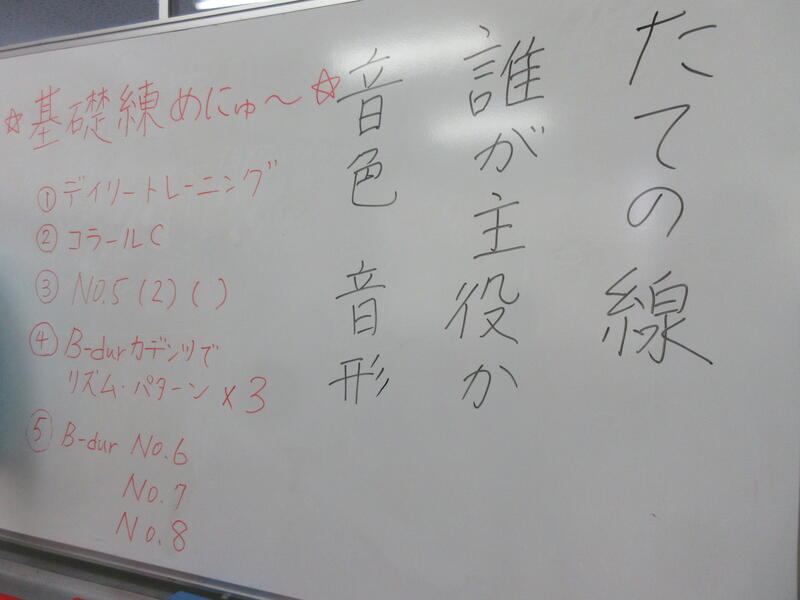 たての線
誰が主役か
音色 音形
☆基礎練めにゅ〜☆
① デイリートレーニング
② コラールC
③ NO.5 (2) ( )
④ B-durカデンツで
リズム・パターン ×3
⑤ B-dur No.6
No.7
No.8